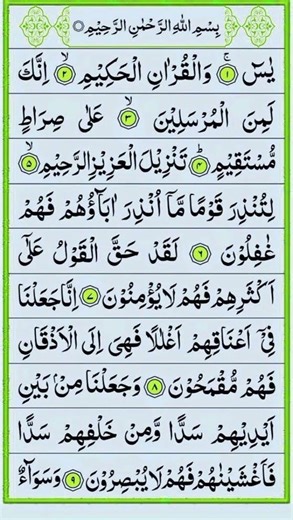 بِسْمِ اللهِ الرَّحْمٰنِ الرَّحِيْمِ
يٰسٓ ۚ﴿۱﴾ وَالْقُرْاٰنِ الْحَكِيْمِ ۙ﴿۲﴾ اِنَّكَ
لَمِنَ الْمُرْسَلِيْنَ ۙ﴿۳﴾ عَلٰى صِرَاطٍ
مُّسْتَقِيْمٍ ؕ﴿۴﴾ تَنْزِيْلَ الْعَزِيْزِ الرَّحِيْمِ ۙ﴿۵﴾
لِتُنْذِرَ قَوْمًا مَّاۤ اُنْذِرَ اٰبَآؤُهُمْ فَهُمْ
غٰفِلُوْنَ ﴿۶﴾ لَقَدْ حَقَّ الْقَوْلُ عَلٰۤى
اَكْثَرِهِمْ فَهُمْ لَا يُؤْمِنُوْنَ ﴿۷﴾ اِنَّا جَعَلْنَا
فِيْۤ اَعْنَاقِهِمْ اَغْلٰلًا فَهِيَ اِلَى الْاَذْقَانِ
فَهُمْ مُّقْمَحُوْنَ ﴿۸﴾ وَجَعَلْنَا مِنْۢ بَيْنِ
اَيْدِيْهِمْ سَدًّا وَّمِنْ خَلْفِهِمْ سَدًّا
فَاَغْشَيْنٰهُمْ فَهُمْ لَا يُبْصِرُوْنَ ﴿۹﴾ وَسَوَآءٌ